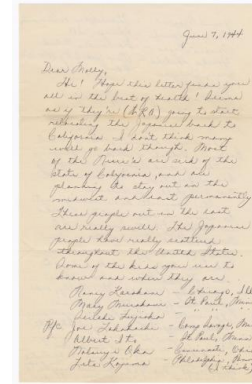 June 7, 1944
Dear Molly,
Hi! Hope this letter finds you
all in the best of health! Seems
as if they're (WRA) going to start
releasing the Japanese back to
California. I don't think many
will go back though. Most
of the Nisei's are sick of the
state of California, and are
planning to stay out in the
midwest and east permanently.
These people out in the east
are really swell. The Japanese
people have really scattered
throughout the United States.
Some of the kids you use to
know and where they are.
Nancy - Chicago, Ill
Mary - St. Paul, Minn
- " " "
Pfc Joe Takahashi - Camp Savage, Minn
Albert Ito - St. Paul, Minn
Oka - Cincinnati, Ohio
Kojima - Philadelphia, Penn
(I think)